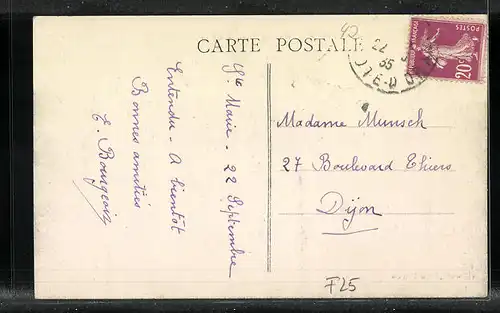 CARTE POSTALE
Ste Marie - 22 Septembre
Entendu - A bientôt
Bonnes amitiés
E. Bourgeois
Madame Munsch
27 Boulevard Thiers
Dijon
F25
40
22
35
POSTES
20c